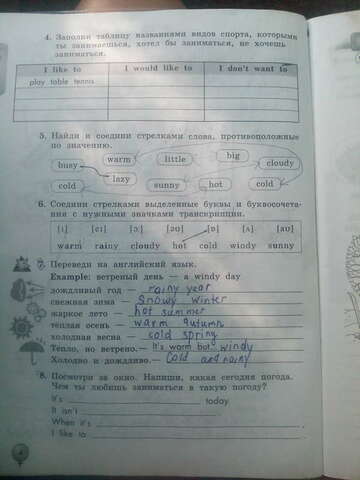 4. Заполни таблицу названиями видов спорта, которыми
ты занимаешься, хотел бы заниматься, не хочешь
заниматься.
I like to I would like to I don't want to
play table tennis
5. Найди и соедини стрелками слова, противоположные
по значению.
busy warm little big cloudy
cold lazy sunny hot cold
6. Соедини стрелками выделенные буквы и буквосочета-
ния с нужными значками транскрипции.
[ɪ] [eɪ] [ɔ:] [əʊ] [ɒ] [ʌ] [aʊ]
warm rainy cloudy hot cold windy sunny
7. Переведи на английский язык.
Example: ветреный день — a windy day
дождливый год — rainy year
свежная зима — Snowy winter
жаркое лето — hot summer
теплая осень — warm autumn
холодная весна — cold spring
Тепло, но ветрено. — It's warm but windy
Холодно и дождливо. — Cold and rainy
8. Посмотри за окно. Напиши, какая сегодня погода.
Чем ты любишь заниматься в такую погоду?
It's today.
It isn't
When it's
I like to